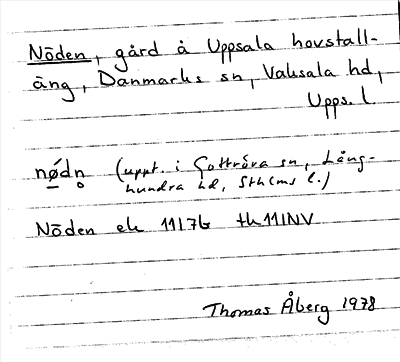 Nöden, gård å Uppsala hovstall-
äng, Danmarks sn, Vaksala hd,
Upps. l.
nǿ̱dn̥ (uppt. i Gottröra sn, Lång-
hundra hd, Sthlms l.)
Nöden ek 11I7b th 11INV
Thomas Åberg 1978